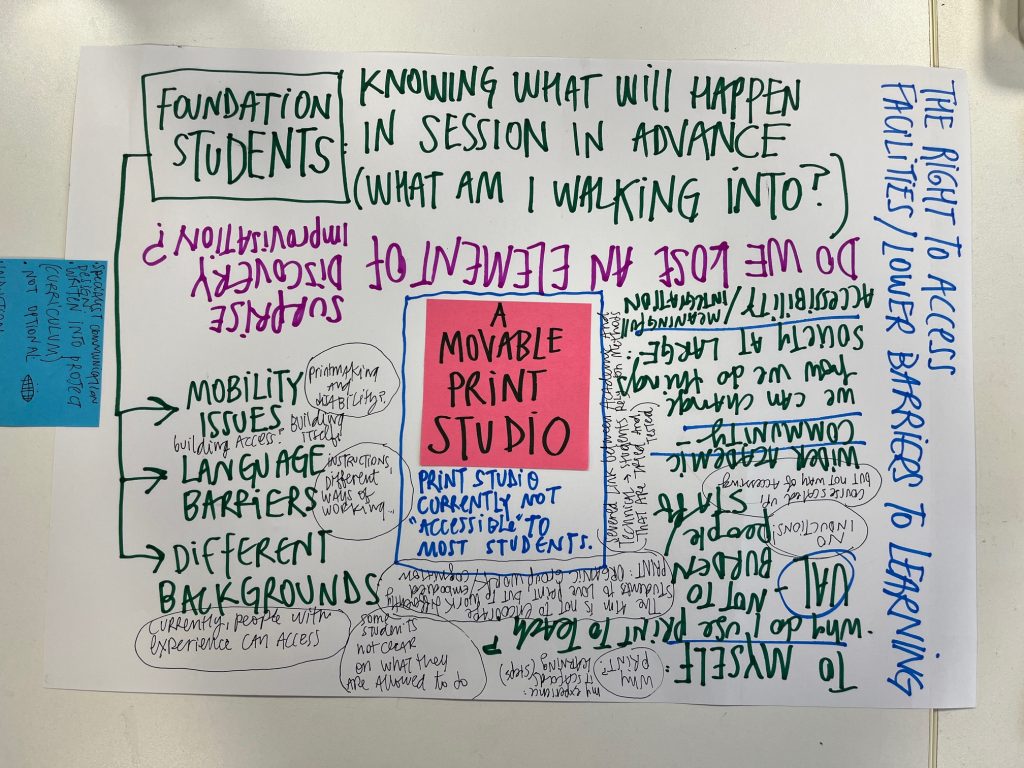 FOUNDATION
STUDENTS:
KNOWING WHAT WILL HAPPEN
IN SESSION IN ADVANCE
(WHAT AM I WALKING INTO?)
THE RIGHT TO ACCESS
FACILITIES/LOWER BARRIERS TO LEARNING
DO WE LOSE AN ELEMENT OF
SURPRISE
DISCOVERY
IMPROVISATION?
A
MOVABLE
PRINT
STUDIO
PRINT STUDIO
CURRENTLY NOT
"ACCESSIBLE" TO
MOST STUDENTS.
MOBILITY
ISSUES
Printmaking
AND
disABILITY?
building Access? Building
itself?
LANGUAGE
BARRIERS
INSTRUCTIONS,
Different
WAYS OF
WORKING...
DIFFERENT
BACKGROUNDS:
Currently, people with
experience CAN ACCESS
some
students
not clear
on what they
are allowed to do
TO MYSELF:
• Why do I use PRINT TO TEACH?
WHY
PRINT?
my experience:
it scaffolds
learning (steps)
The Aim is not to encourage
students to love print but to work differently
PRINT: ORGANIC GROUP WORK/embodied
cognition
UAL -
NOT TO
BURDEN
people/
STAFF
NO
INDUCTIONS!
but not way of Accessing
WIDER ACADEMIC
COMMUNITY -
we can change
how we do things
SOCIETY AT LARGE:
ACCESSIBILITY/MEANINGFUL
INTEGRATION
link between Academic And
technical → students rely on methods
THAT ARE TRIED AND
TESTED)
SPECIALIST COMMUNICATION
DESIGN
• WRITTEN INTO PROJECT
(CURRICULUM)
• NOT OPTIONAL